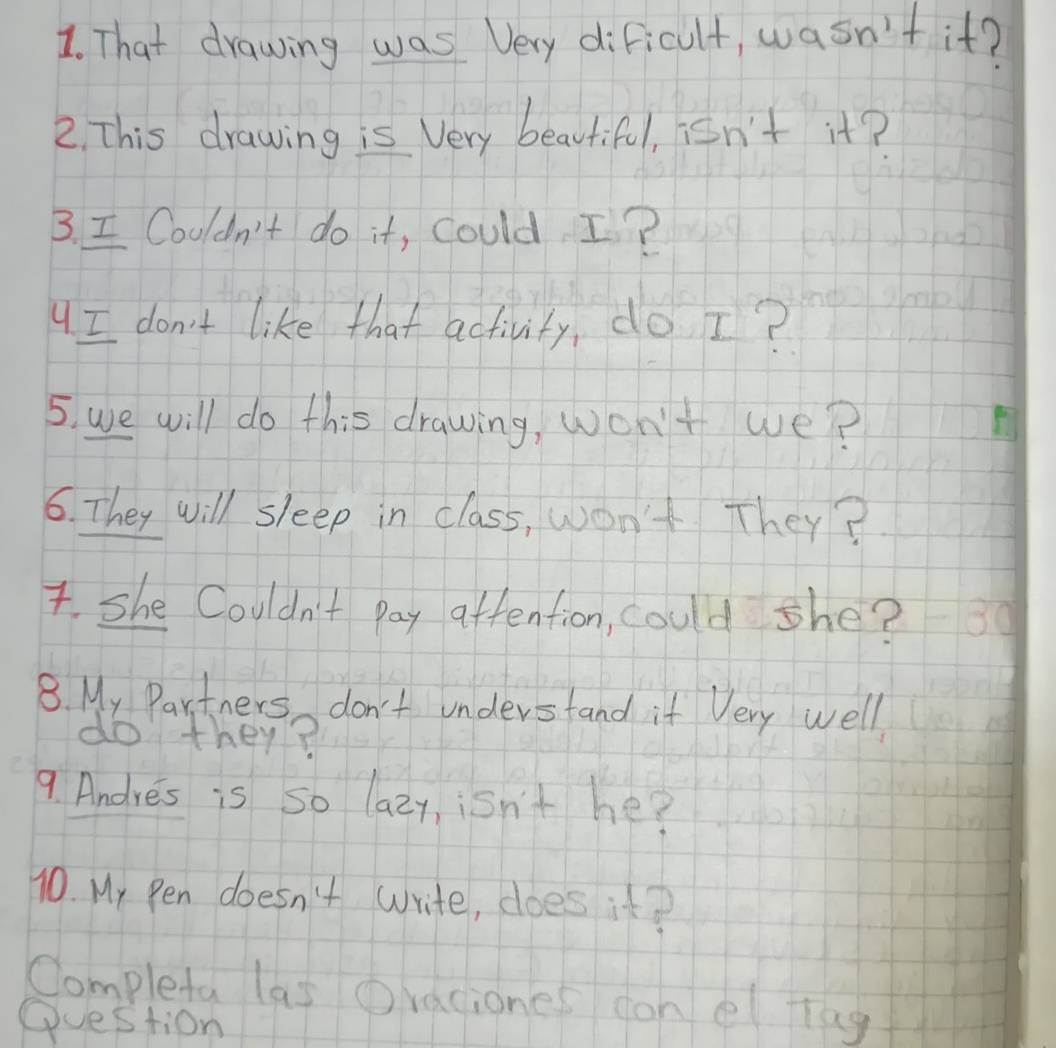 1. That drawing was Very dificult, wasn't it?
2. This drawing is Very beautiful, isn't it?
3. I Couldn't do it, could I?
4. I don't like that activity, do I?
5. we will do this drawing, won't we?
6. They will sleep in class, won't They?
7. she Couldn't pay attention, could she?
8. My Partners don't understand it Very well,
do they?
9. Andrés is so lazy, isn't he?
10. My Pen doesn't write, does it?
Completa las Oraciones con el Tag
Question